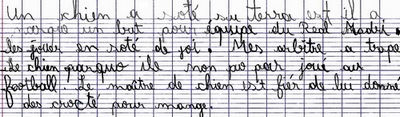 Un chien a soté su terra est il a
marque un but pour équipe du Real Madri.
les jouer en soté de joi. Mes arbitre a trape
Le chien parquo ile non pa par joué aus
football. Le maître de chien est fier de lui donné
des crocté pour mange.